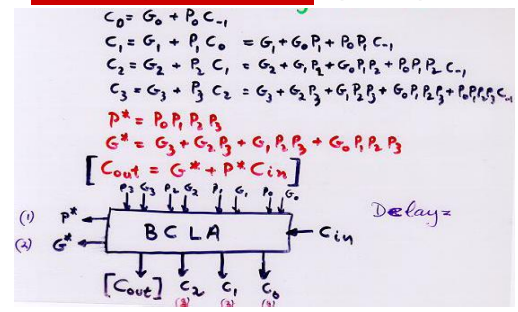 C₀ = G₀ + P₀ C₋₁
C₁ = G₁ + P₁ C₀ = G₁ + G₀ P₁ + P₀ P₁ C₋₁
C₂ = G₂ + P₂ C₁ = G₂ + G₁ P₂ + G₀ P₁ P₂ + P₀ P₁ P₂ C₋₁
C₃ = G₃ + P₃ C₂ = G₃ + G₂ P₃ + G₁ P₂ P₃ + G₀ P₁ P₂ P₃ + P₀ P₁ P₂ P₃ C₋₁
P* = P₀ P₁ P₂ P₃
G* = G₃ + G₂ P₃ + G₁ P₂ P₃ + G₀ P₁ P₂ P₃
[Cout = G* + P* Cin]
P₃ G₃ P₂ G₂ P₁ G₁ P₀ G₀
Delay=
(1) P*
BCLA
Cin
(2) G*
[Cout] C₂ C₁ C₀